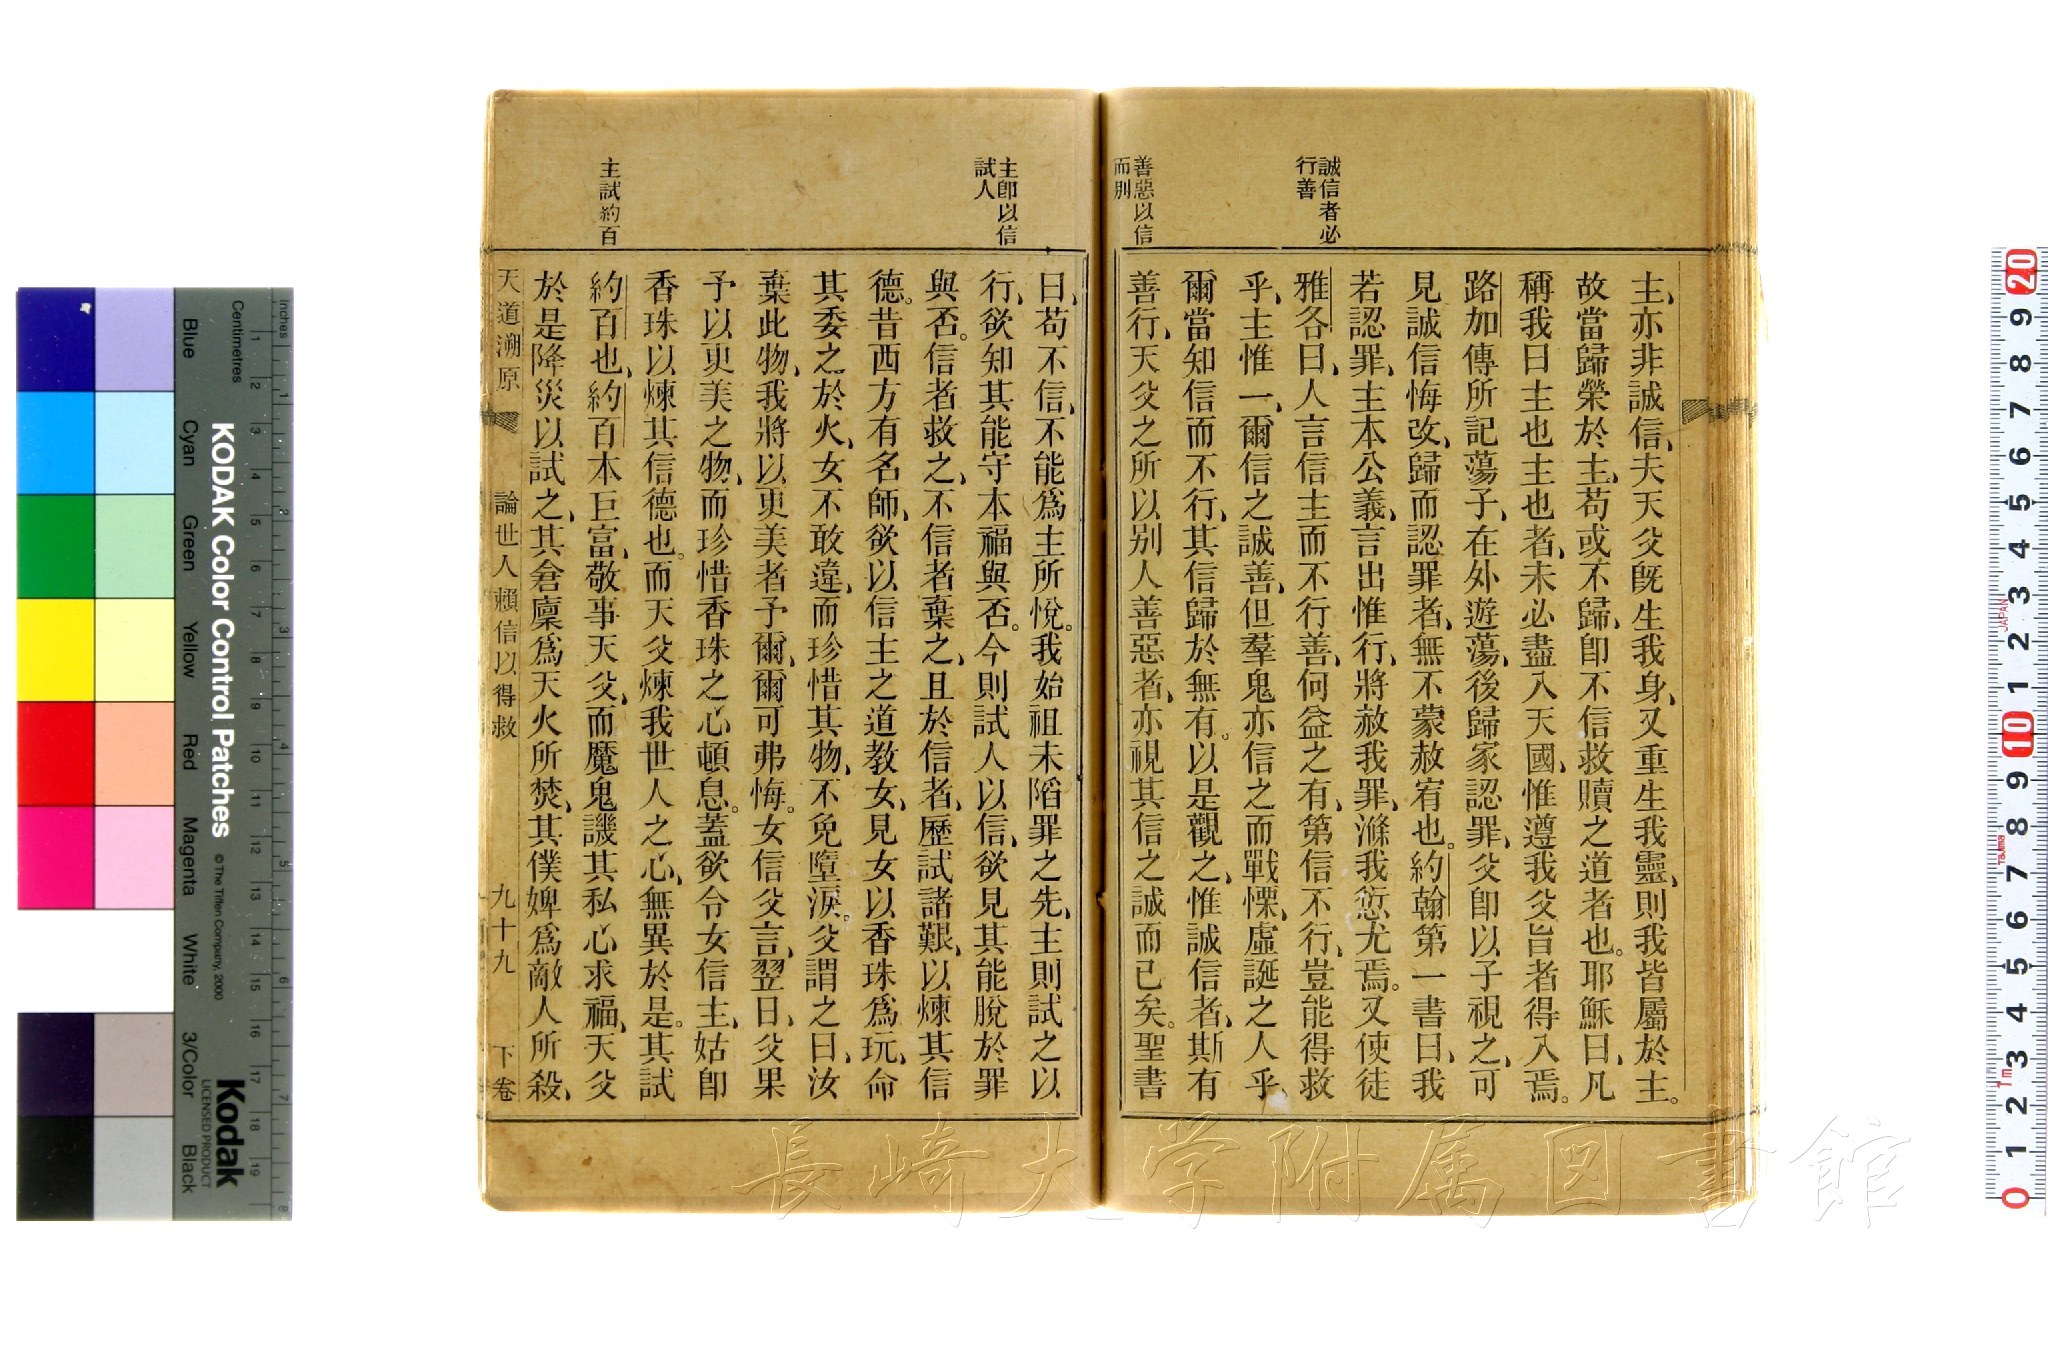 誠信者必
行善
善惡以信
而別
主、亦非誠信、夫天父既生我身、又重生我靈、則我皆屬於主。
故當歸榮於主、苟或不歸、卽不信救贖之道者也。耶穌曰、凡
稱我曰主也主也者、未必盡入天國、惟遵我父旨者得入焉。
路加傳所記蕩子、在外遊蕩、後歸家認罪、父卽以子視之、可
見誠信悔改、歸而認罪者、無不蒙赦宥也。約翰第一書曰、我
若認罪、主本公義、言出惟行、將赦我罪、滌我愆尤焉。又使徒
雅各曰、人言信主而不行善、何益之有、第信不行、豈能得救
乎、主惟一、爾信之誠善、但羣鬼亦信之而戰慄、虛誕之人乎、
爾當知信而不行、其信歸於無有。以是觀之、惟誠信者、斯有
善行、天父之所以別人善惡者、亦視其信之誠而已矣。聖書
主卽以信
試人
主試約百
曰、苟不信、不能爲主所悅。我始祖未陷罪之先、主則試之以
行、欲知其能守本福與否。今則試人以信、欲見其能脫於罪
與否。信者救之、不信者棄之、且於信者、歷試諸艱、以煉其信
德。昔西方有名師、欲以信主之道教女、見女以香珠爲玩、命
其委之於火、女不敢違、而珍惜其物、不免墮淚。父謂之曰、汝
棄此物、我將以更美者予爾、爾可弗悔。女信父言、翌日、父果
予以更美之物、而珍惜香珠之心頓息。蓋欲令女信主、姑卽
香珠以煉其信德也。而天父煉我世人之心、無異於是。其試
約百也、約百本巨富、敬事天父、而魔鬼譏其私心求福、天父
於是降災以試之、其倉廩爲天火所焚、其僕婢爲敵人所殺、
天道溯原 論世人賴信以得救 九十九 下卷
長崎大学附属図書館
KODAK Color Control Patches
© The Tiffen Company, 2000
Kodak
LICENSED PRODUCT
Inches
Centimetres
Blue
Cyan
Green
Yellow
Red
Magenta
White
3/Color
Black
1 2 3 4 5 6 7 8 9 10 11 12 13 14 15 16 17 18 19
1 2 3 4 5 6 7 8
20 9 8 7 6 5 4 3 2 1 10 9 8 7 6 5 4 3 2 1 0
JAPAN
Tajima
1m